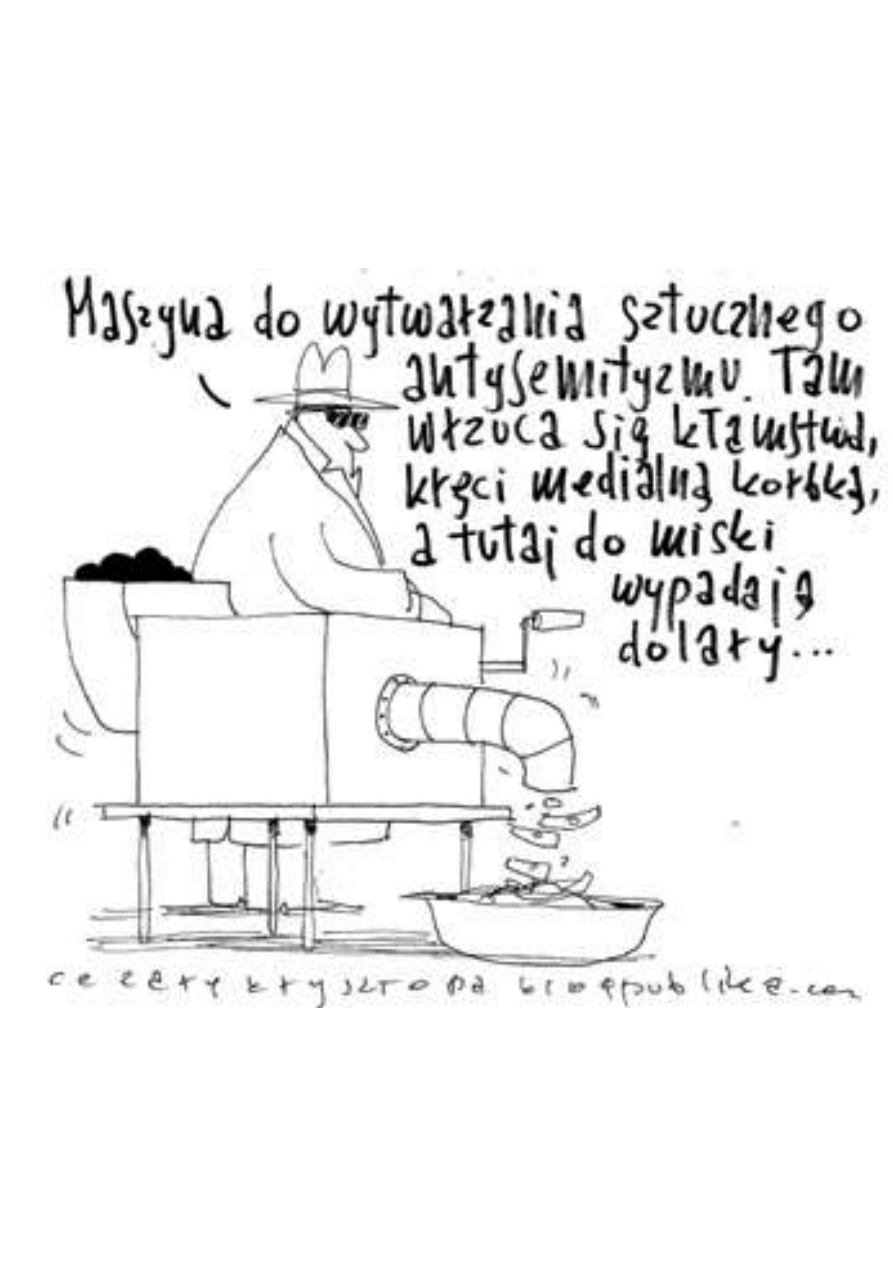 Maszyna do wytwarzania sztucznego
antysemityzmu. Tam
wrzuca się kłamstwa,
kręci medialną korbką,
a tutaj do miski
wypadają
dolary...
cezary krysztopa blogpublika.com